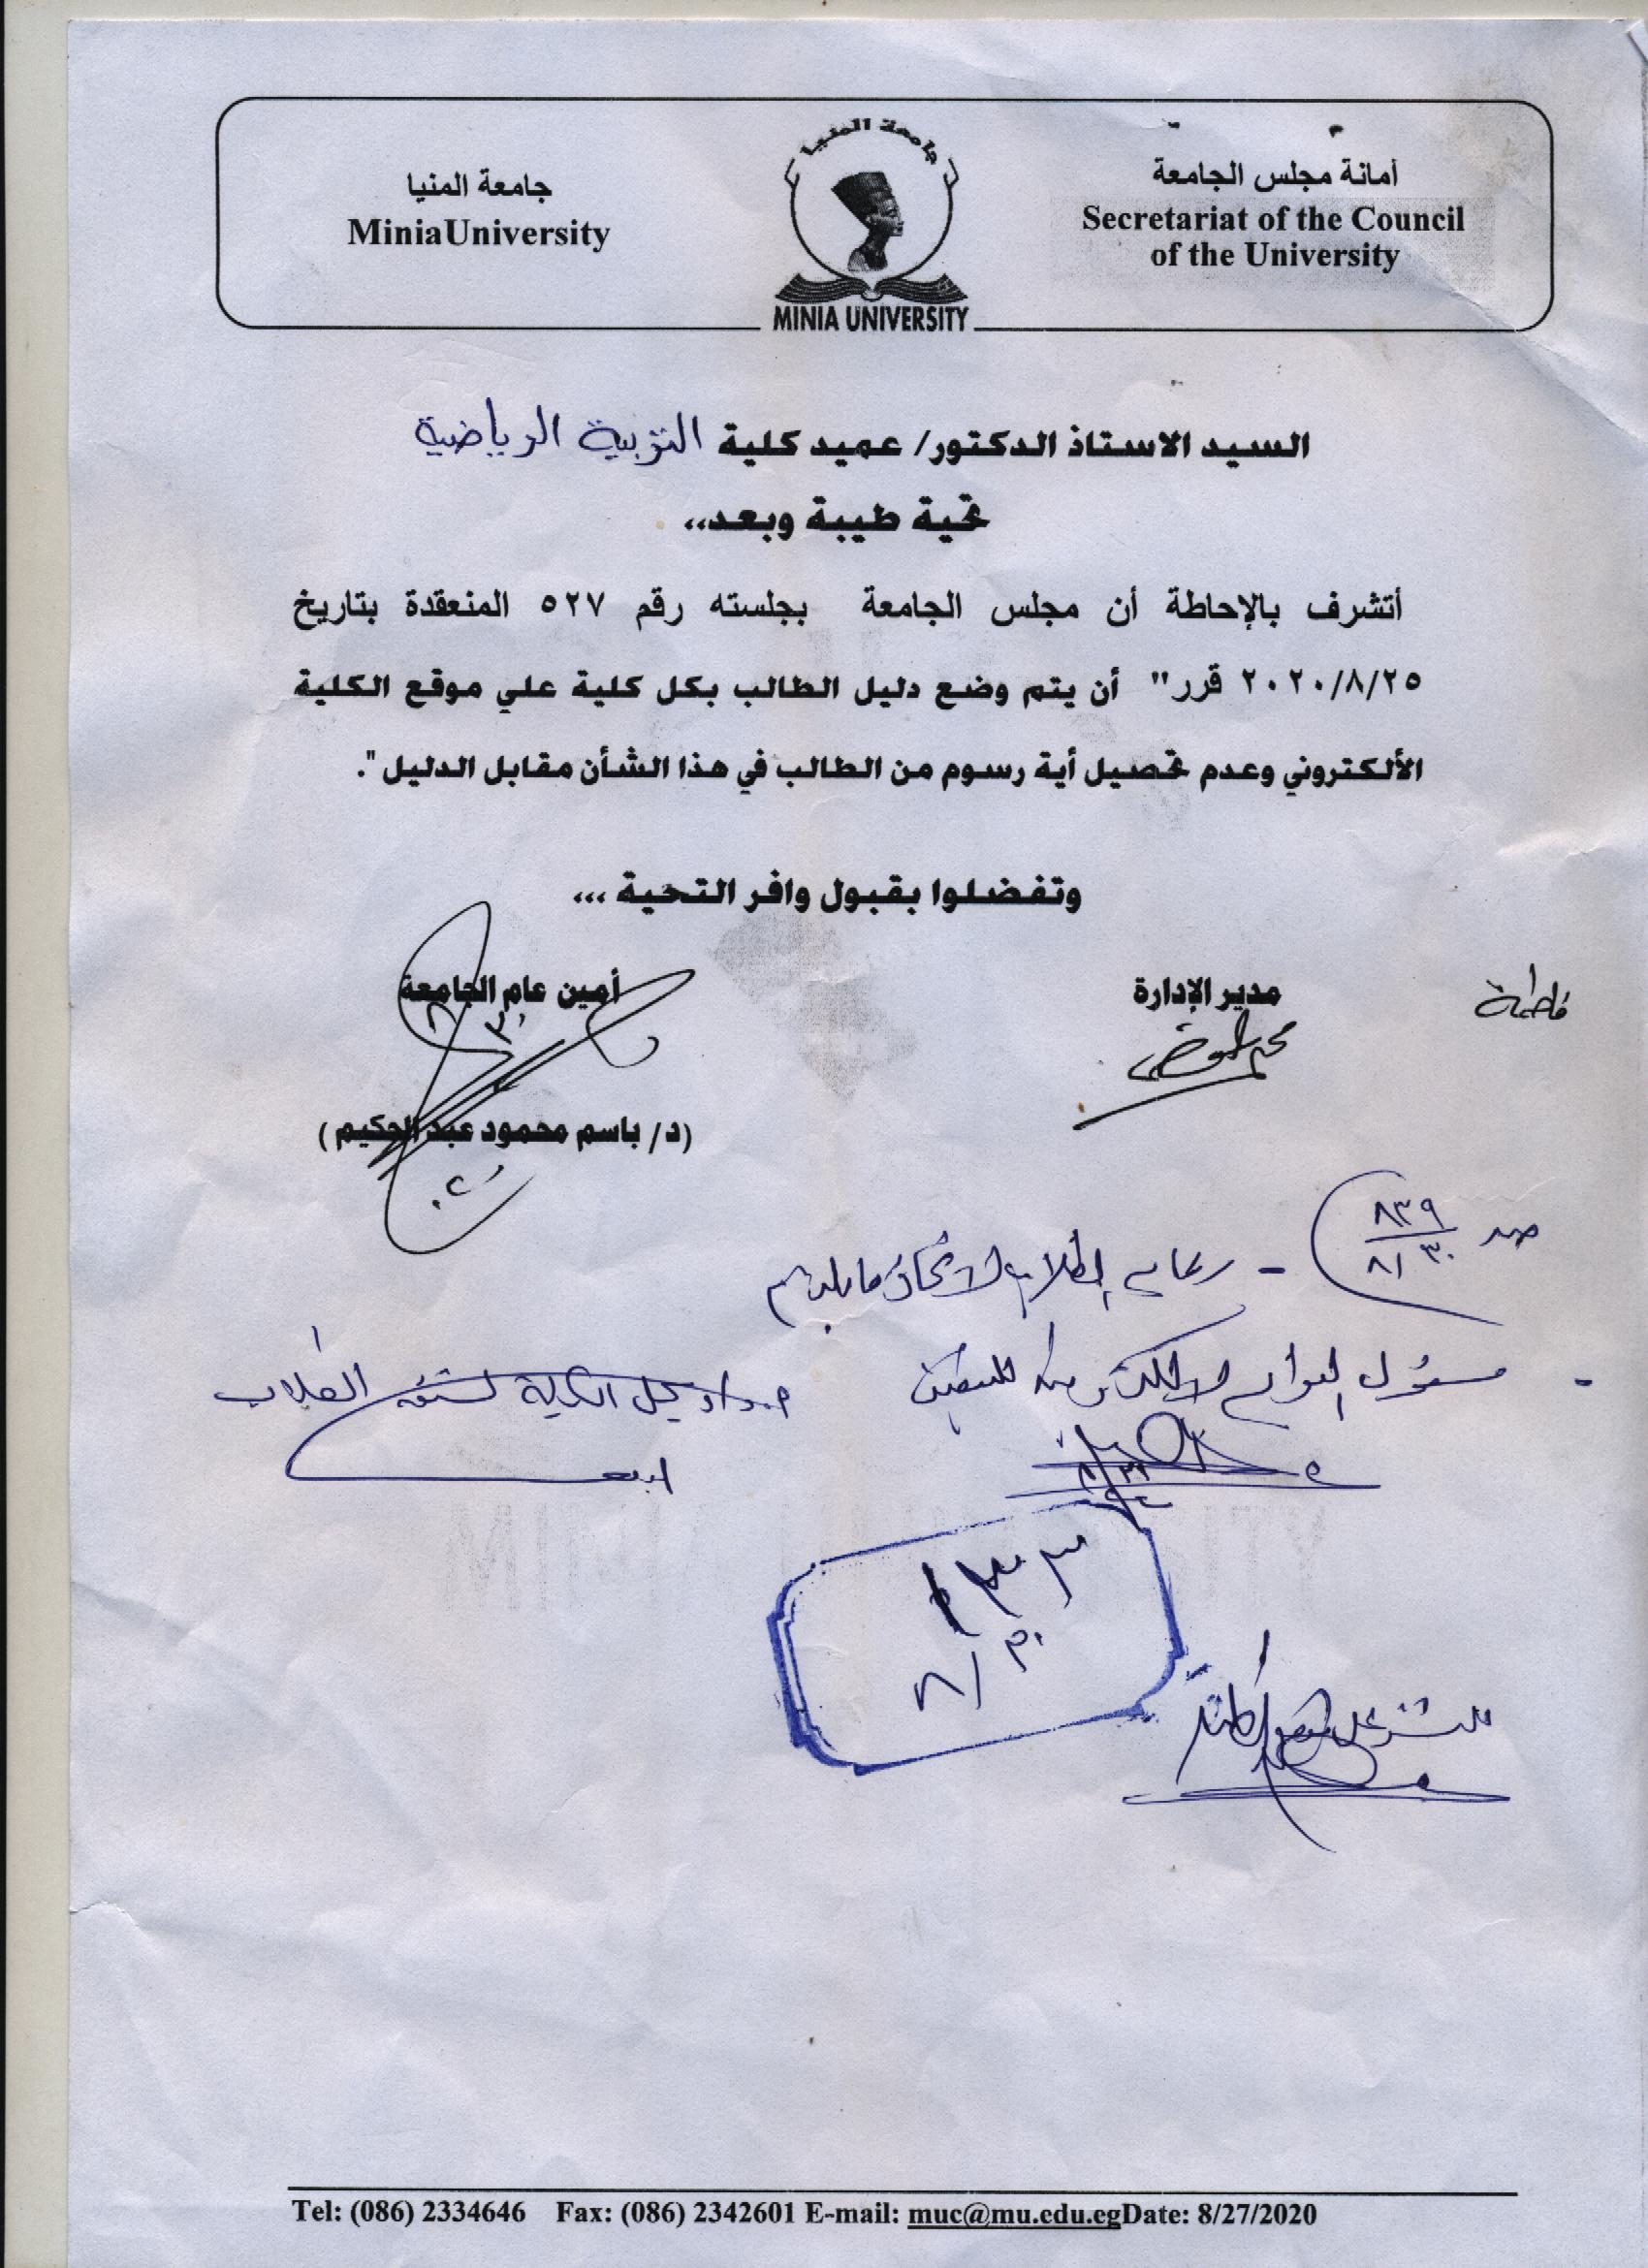 أمانة مجلس الجامعة
Secretariat of the Council
of the University
جامعة المنيا
MINIA UNIVERSITY
جامعة المنيا
MiniaUniversity
السيد الاستاذ الدكتور/ عميد كلية التربية الرياضية
تحية طيبة وبعد،،
أتشرف بالإحاطة أن مجلس الجامعة بجلسته رقم ٥٢٧ المنعقدة بتاريخ
٢٠٢٠/٨/٢٥ قرر" أن يتم وضع دليل الطالب بكل كلية علي موقع الكلية
الألكتروني وعدم تحصيل أية رسوم من الطالب في هذا الشأن مقابل الدليل".
وتفضلوا بقبول وافر التحية ...
فاطمة
مدير الإدارة
أمين عام الجامعة
(د/ باسم محمود عبد الحكيم )
صد ٨٣٩
٨/٣٠
- رعاية الطلاب لاتخاذ ما يلزم
- مسئول
وكيل الكلية لشئون الطلاب
١٣٣
٨/٣٠
Tel: (086) 2334646 Fax: (086) 2342601 E-mail: muc@mu.edu.egDate: 8/27/2020